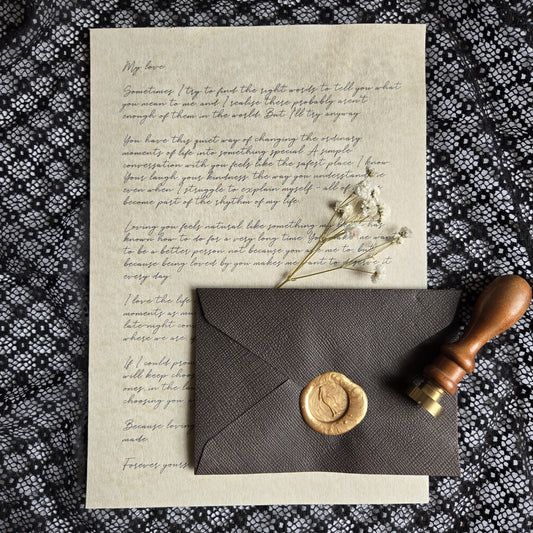 My love,
Sometimes I try to find the right words to tell you what
you mean to me and I realise there probably aren't
enough of them in the world. But I'll try anyway.
You have this quiet way of changing the ordinary
moments of life into something special. A simple
conversation with you feels like the safest place I know.
Your laugh, your kindness, the way you understand
even when I struggle to explain myself - all of
become part of the rhythm of my life.
Loving you feels natural, like something my
known how to do for a very long time. You me want
to be a better person not because you ask me to, but
because being loved by you makes me want to deserve it
every day.
I love the life
moments as mu
late-night con
where we are
If I could pro
will keep choos
ones, in the lau
choosing you,
Because loving
made.
Forever yours